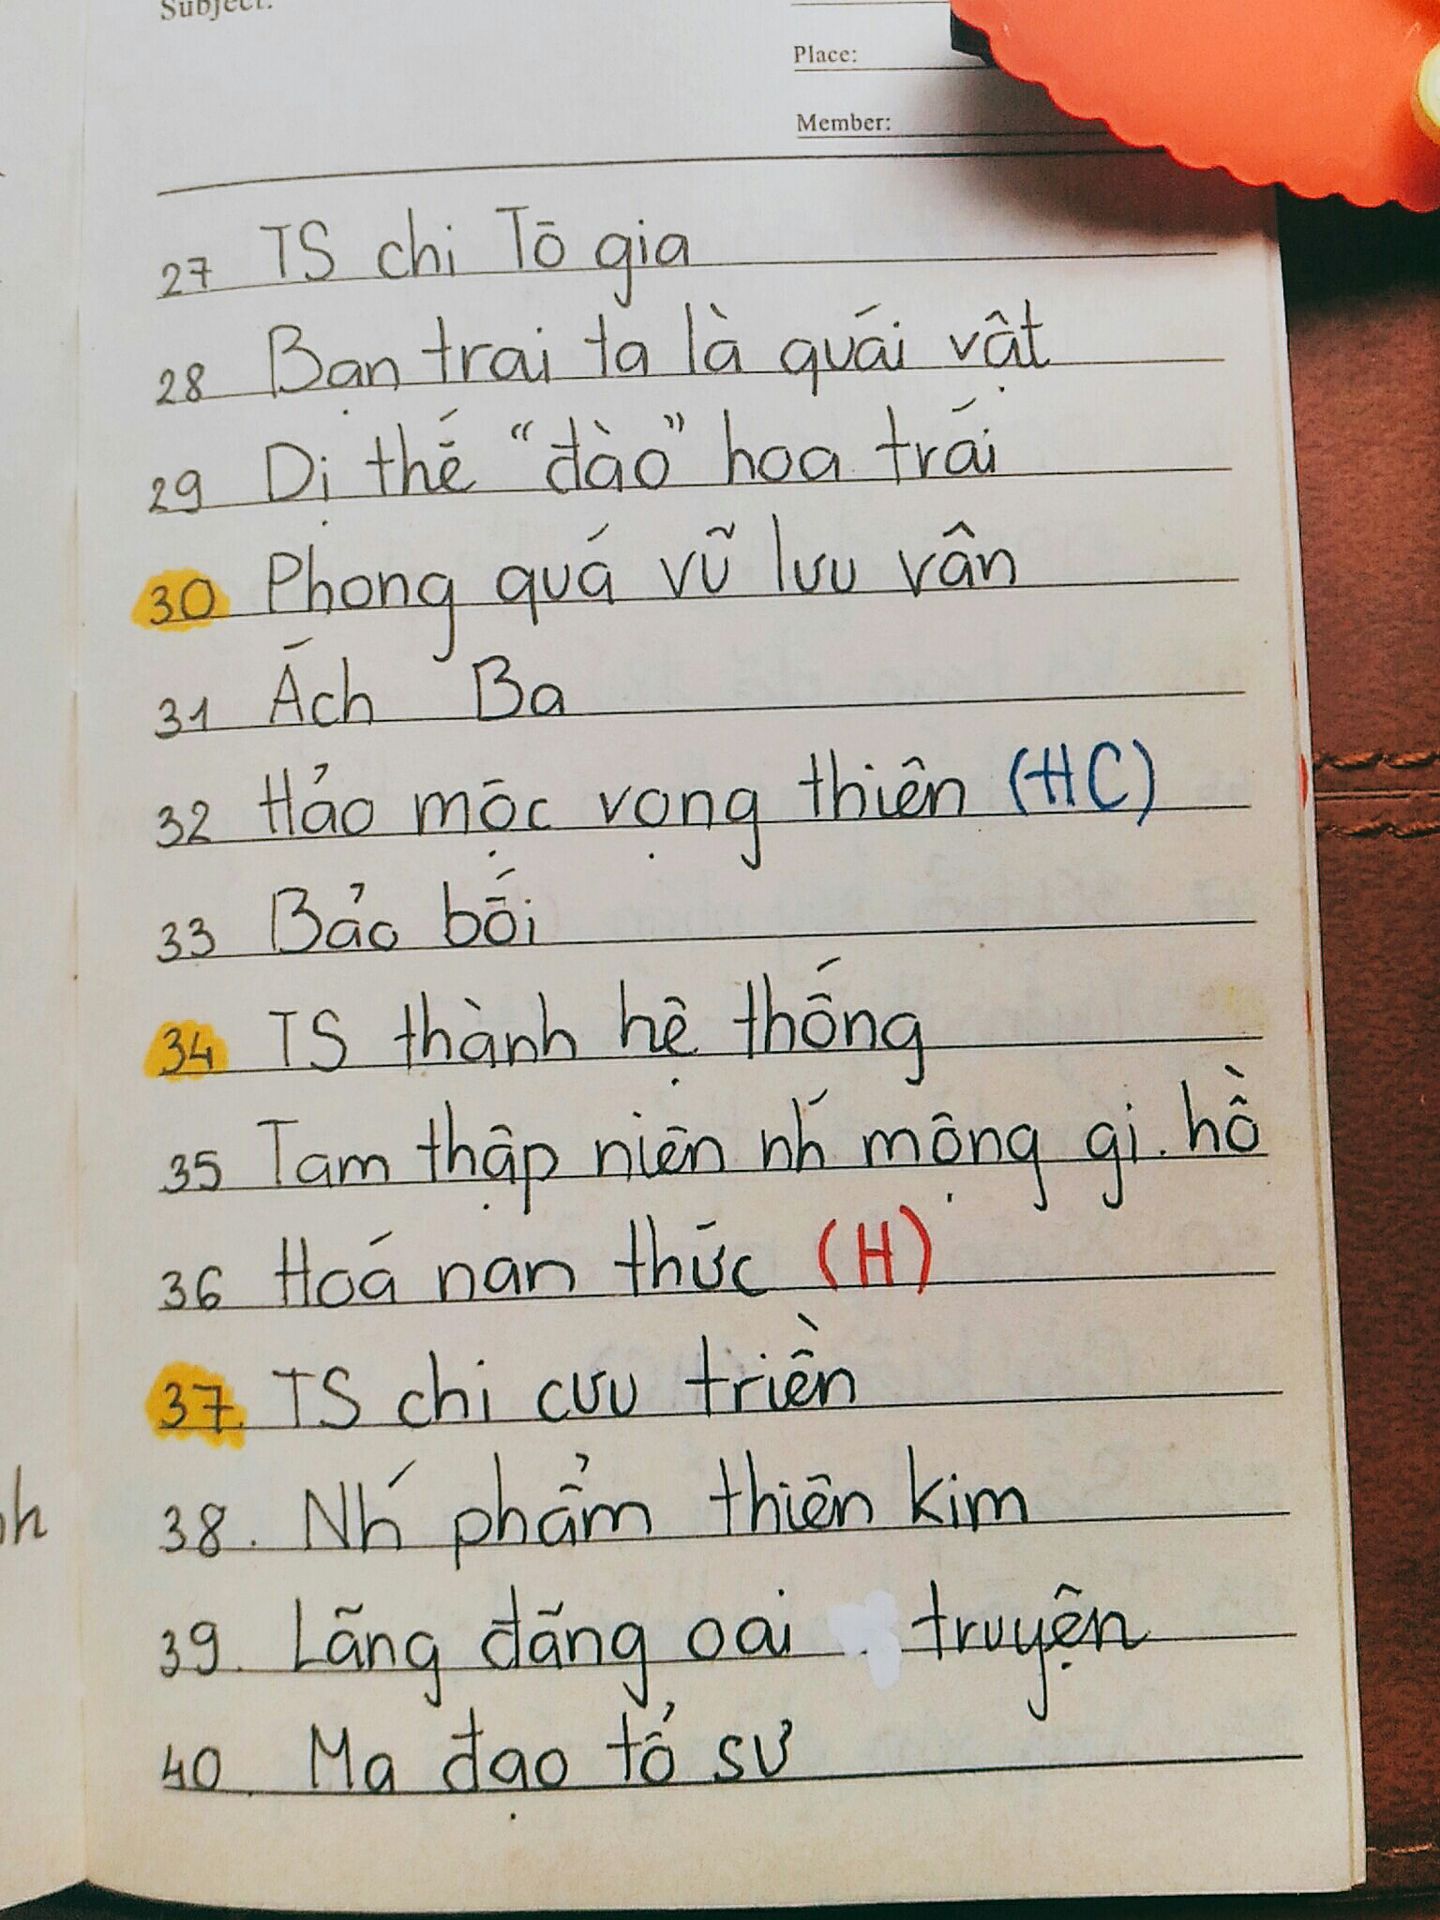 Subject:
Place:
Member:
27 TS chi Tô gia
28 Bạn trai ta là quái vật
29 Dị thế "đào" hoa trái
30 Phong quá vũ lưu vân
31 Ách Ba
32 Hảo mộc vọng thiên (HC)
33 Bảo bối
34 TS thành hệ thống
35 Tam thập niên nh́ mộng gi. hồ
36 Hoá nan thức (H)
37. TS chi cưu triền
38. Nh́ phẩm thiên kim
39. Lãng đãng oai truyện
40. Ma đạo tổ sư